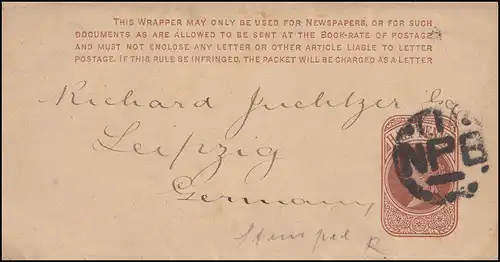 THIS WRAPPER MAY ONLY BE USED FOR NEWSPAPERS, OR FOR SUCH
DOCUMENTS AS ARE ALLOWED TO BE SENT AT THE BOOK-RATE OF POSTAGE
AND MUST NOT ENCLOSE ANY LETTER OR OTHER ARTICLE LIABLE TO LETTER
POSTAGE. IF THIS RULE BE INFRINGED, THE PACKET WILL BE CHARGED AS A LETTER
Richard
Leipzig
Germany
NPB
Stempel R